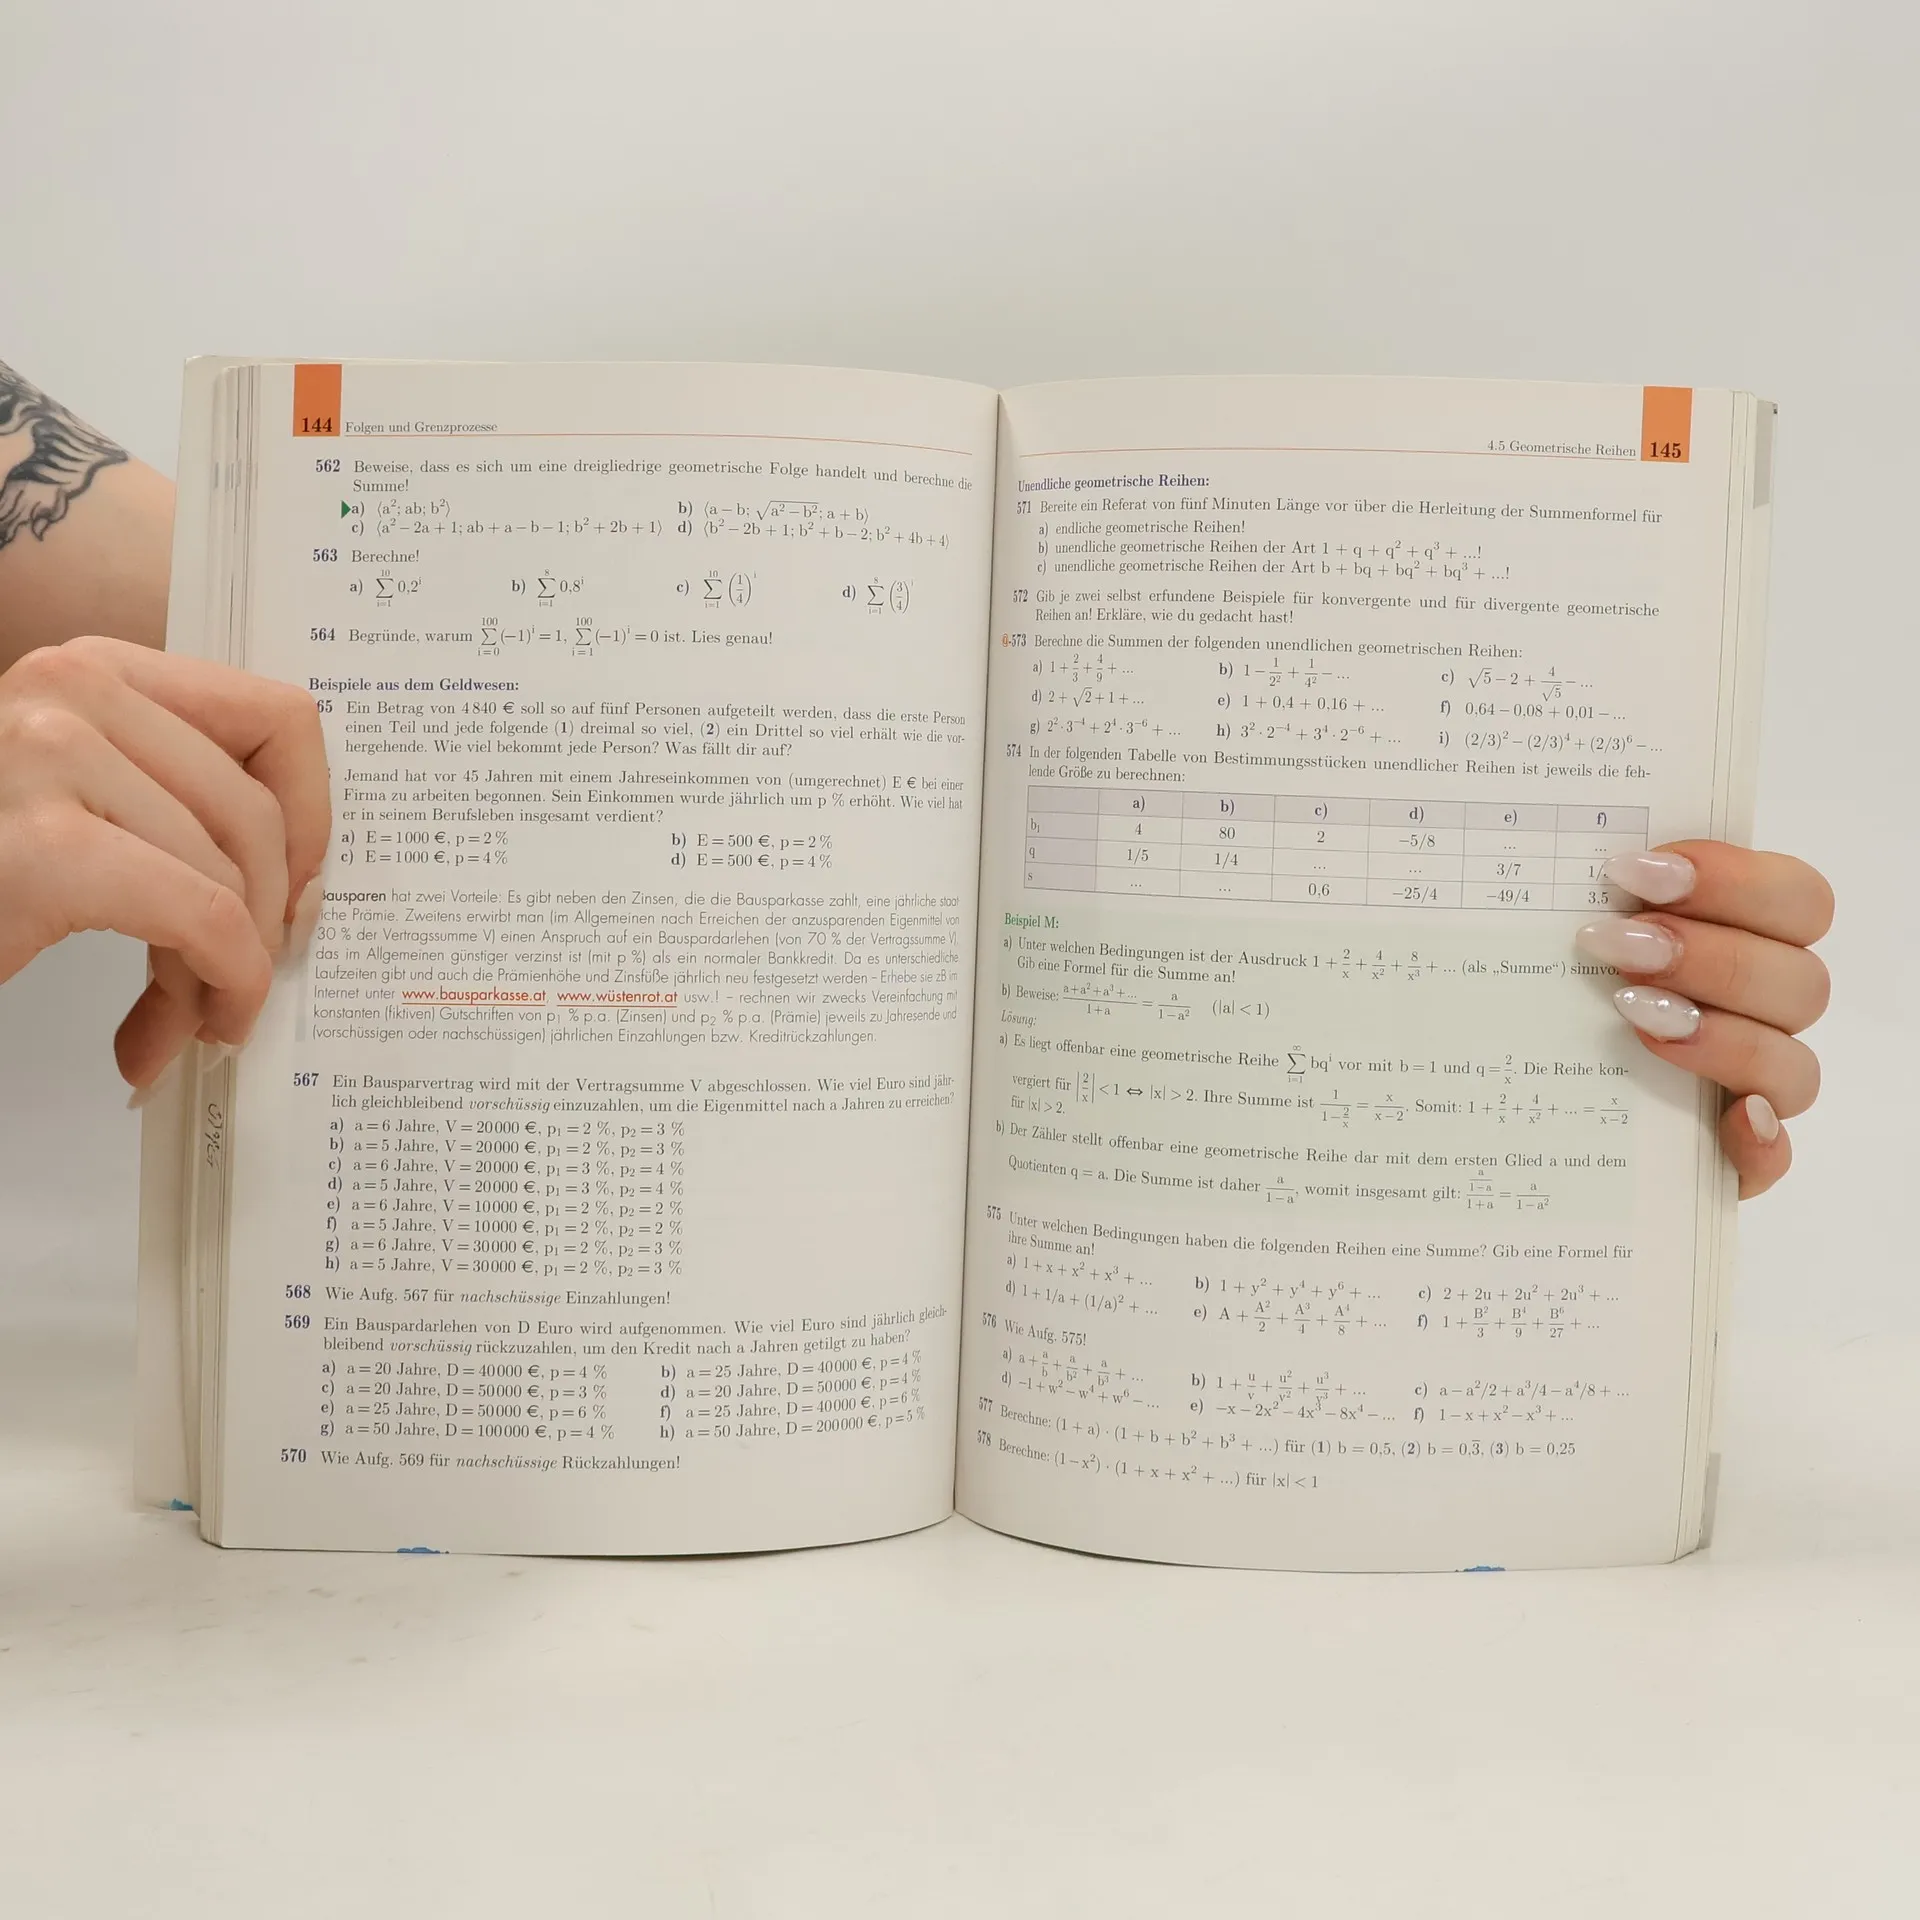 144 Folgen und Grenzprozesse
562 Beweise, dass es sich um eine dreigliedrige geometrische Folge handelt und berechne die
Summe!
a) ⟨a²; ab; b²⟩ b) ⟨a – b; √(a² – b²); a + b⟩
c) ⟨a² – 2a + 1; ab + a – b – 1; b² + 2b + 1⟩ d) ⟨b² – 2b + 1; b² + b – 2; b² + 4b + 4⟩
563 Berechne!
a) ∑_{i=1}^{10} 0,2^i b) ∑_{i=1}^{8} 0,8^i c) ∑_{i=1}^{10} (1/4)^i d) ∑_{i=1}^{8} (3/4)^i
564 Begründe, warum ∑_{i=0}^{100} (–1)^i = 1, ∑_{i=1}^{100} (–1)^i = 0 ist. Lies genau!
Beispiele aus dem Geldwesen:
65 Ein Betrag von 4840 € soll so auf fünf Personen aufgeteilt werden, dass die erste Person
einen Teil und jede folgende (1) dreimal so viel, (2) ein Drittel so viel erhält wie die vor-
hergehende. Wie viel bekommt jede Person? Was fällt dir auf?
Jemand hat vor 45 Jahren mit einem Jahreseinkommen von (umgerechnet) E € bei einer
Firma zu arbeiten begonnen. Sein Einkommen wurde jährlich um p % erhöht. Wie viel hat
er in seinem Berufsleben insgesamt verdient?
a) E = 1000 €, p = 2 % b) E = 500 €, p = 2 %
c) E = 1000 €, p = 4 % d) E = 500 €, p = 4 %
Bausparen hat zwei Vorteile: Es gibt neben den Zinsen, die die Bausparkasse zahlt, eine jährliche staat-
liche Prämie. Zweitens erwirbt man (im Allgemeinen nach Erreichen der anzusparenden Eigenmittel von
30 % der Vertragssumme V) einen Anspruch auf ein Bauspardarlehen (von 70 % der Vertragssumme V),
das im Allgemeinen günstiger verzinst ist (mit p %) als ein normaler Bankkredit. Da es unterschiedliche
Laufzeiten gibt und auch die Prämienhöhe und Zinsfüße jährlich neu festgesetzt werden – Erhebe sie zB im
Internet unter www.bausparkasse.at, www.wüstenrot.at usw.! – rechnen wir zwecks Vereinfachung mit
konstanten (fiktiven) Gutschriften von p₁ % p.a. (Zinsen) und p₂ % p.a. (Prämie) jeweils zu Jahresende und
(vorschüssigen oder nachschüssigen) jährlichen Einzahlungen bzw. Kreditrückzahlungen.
567 Ein Bausparvertrag wird mit der Vertragssumme V abgeschlossen. Wie viel Euro sind jähr-
lich gleichbleibend vorschüssig einzuzahlen, um die Eigenmittel nach a Jahren zu erreichen?
a) a = 6 Jahre, V = 20000 €, p₁ = 2 %, p₂ = 3 %
b) a = 5 Jahre, V = 20000 €, p₁ = 2 %, p₂ = 3 %
c) a = 6 Jahre, V = 20000 €, p₁ = 3 %, p₂ = 4 %
d) a = 5 Jahre, V = 20000 €, p₁ = 3 %, p₂ = 4 %
e) a = 6 Jahre, V = 10000 €, p₁ = 2 %, p₂ = 2 %
f) a = 5 Jahre, V = 10000 €, p₁ = 2 %, p₂ = 2 %
g) a = 6 Jahre, V = 30000 €, p₁ = 2 %, p₂ = 3 %
h) a = 5 Jahre, V = 30000 €, p₁ = 2 %, p₂ = 3 %
568 Wie Aufg. 567 für nachschüssige Einzahlungen!
569 Ein Bauspardarlehen von D Euro wird aufgenommen. Wie viel Euro sind jährlich gleich-
bleibend vorschüssig rückzuzahlen, um den Kredit nach a Jahren getilgt zu haben?
a) a = 20 Jahre, D = 40000 €, p = 4 % b) a = 25 Jahre, D = 40000 €, p = 4 %
c) a = 20 Jahre, D = 50000 €, p = 3 % d) a = 20 Jahre, D = 50000 €, p = 4 %
e) a = 25 Jahre, D = 50000 €, p = 6 % f) a = 25 Jahre, D = 40000 €, p = 6 %
g) a = 50 Jahre, D = 100000 €, p = 4 % h) a = 50 Jahre, D = 200000 €, p = 5 %
570 Wie Aufg. 569 für nachschüssige Rückzahlungen!
4.5 Geometrische Reihen 145
Unendliche geometrische Reihen:
571 Bereite ein Referat von fünf Minuten Länge vor über die Herleitung der Summenformel für
a) endliche geometrische Reihen!
b) unendliche geometrische Reihen der Art 1 + q + q² + q³ + ...!
c) unendliche geometrische Reihen der Art b + bq + bq² + bq³ + ...!
572 Gib je zwei selbst erfundene Beispiele für konvergente und für divergente geometrische
Reihen an! Erkläre, wie du gedacht hast!
573 Berechne die Summen der folgenden unendlichen geometrischen Reihen:
a) 1 + 2/3 + 4/9 + ... b) 1 – 1/2² + 1/4² – ... c) √5 – 2 + 4/√5 – ...
d) 2 + √2 + 1 + ... e) 1 + 0,4 + 0,16 + ... f) 0,64 – 0,08 + 0,01 – ...
g) 2² · 3⁻⁴ + 2⁴ · 3⁻⁶ + ... h) 3² · 2⁻⁴ + 3⁴ · 2⁻⁶ + ... i) (2/3)² – (2/3)⁴ + (2/3)⁶ – ...
574 In der folgenden Tabelle von Bestimmungsstücken unendlicher Reihen ist jeweils die feh-
lende Größe zu berechnen:
a) b) c) d) e) f)
b₁ 4 80 2 –5/8 ... ...
q 1/5 1/4 ... ... 3/7 1/
s ... ... 0,6 –25/4 –49/4 3,5
Beispiel M:
a) Unter welchen Bedingungen ist der Ausdruck 1 + 2/x + 4/x² + 8/x³ + ... (als „Summe“) sinnvo
Gib eine Formel für die Summe an!
b) Beweise: (a+a²+a³+...)/(1+a) = a/(1–a²) (|a| < 1)
Lösung:
a) Es liegt offenbar eine geometrische Reihe ∑_{i=1}^{∞} bq^i vor mit b = 1 und q = 2/x. Die Reihe kon-
vergiert für |2/x| < 1 ⇔ |x| > 2. Ihre Summe ist 1/(1–2/x) = x/(x–2). Somit: 1 + 2/x + 4/x² + ... = x/(x–2)
für |x| > 2.
b) Der Zähler stellt offenbar eine geometrische Reihe dar mit dem ersten Glied a und dem
Quotienten q = a. Die Summe ist daher a/(1–a), womit insgesamt gilt: (a/(1–a))/(1+a) = a/(1–a²)
575 Unter welchen Bedingungen haben die folgenden Reihen eine Summe? Gib eine Formel für
ihre Summe an!
a) 1 + x + x² + x³ + ... b) 1 + y² + y⁴ + y⁶ + ... c) 2 + 2u + 2u² + 2u³ + ...
d) 1 + 1/a + (1/a)² + ... e) A + A²/2 + A³/4 + A⁴/8 + ... f) 1 + B²/3 + B⁴/9 + B⁶/27 + ...
576 Wie Aufg. 575!
a) a + a/b + a/b² + a/b³ + ... b) 1 + u/v + u²/v² + u³/v³ + ... c) a – a²/2 + a³/4 – a⁴/8 + ...
d) –1 + w² – w⁴ + w⁶ – ... e) –x – 2x² – 4x³ – 8x⁴ – ... f) 1 – x + x² – x³ + ...
577 Berechne: (1 + a) · (1 + b + b² + b³ + ...) für (1) b = 0,5, (2) b = 0,3̅, (3) b = 0,25
578 Berechne: (1 – x²) · (1 + x + x² + ...) für |x| < 1